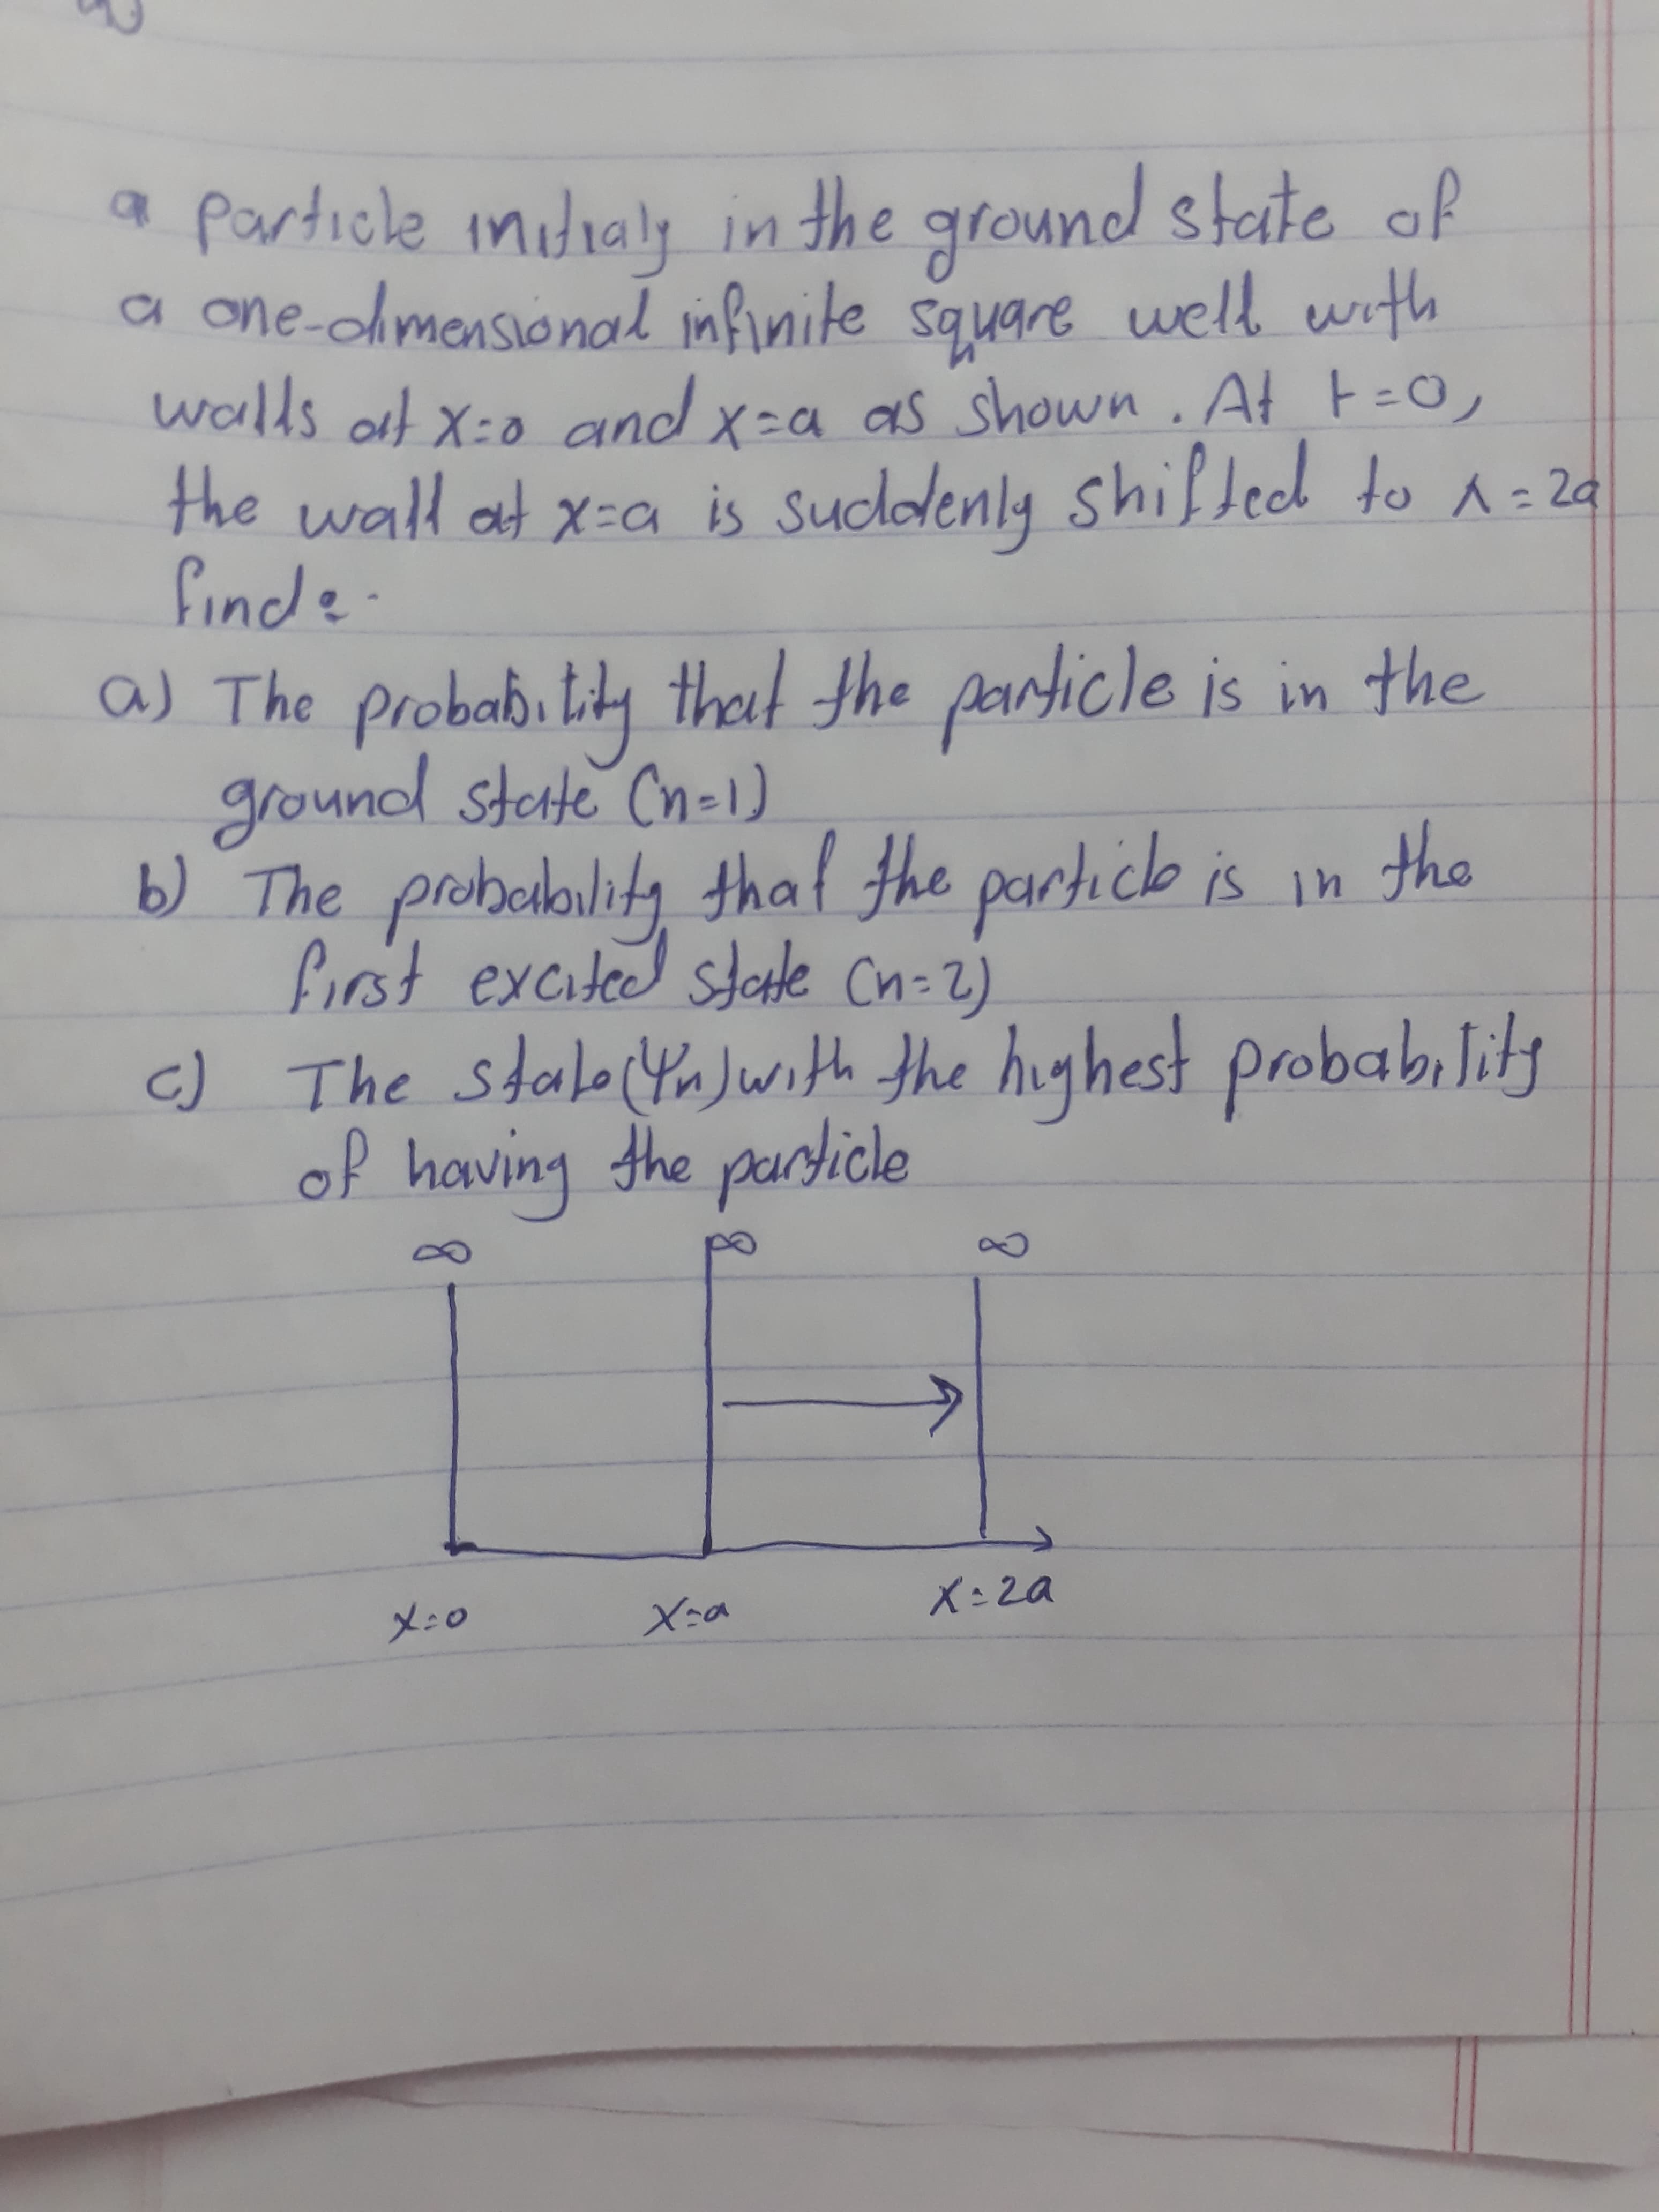 a particle initialy in the ground state of
a one-dimensional infinite square well with
walls at x=0 and x=a as shown. At t=0,
the wall at x=a is suddenly shifted to x=2a
find:-
a) The probability that the particle is in the
ground state (n=1)
b) The probability that the particle is in the
first excited state (n=2)
c) The state (Ψn) with the highest probability
of having the particle
∞ ∞ ∞
x=0 x=a x=2a